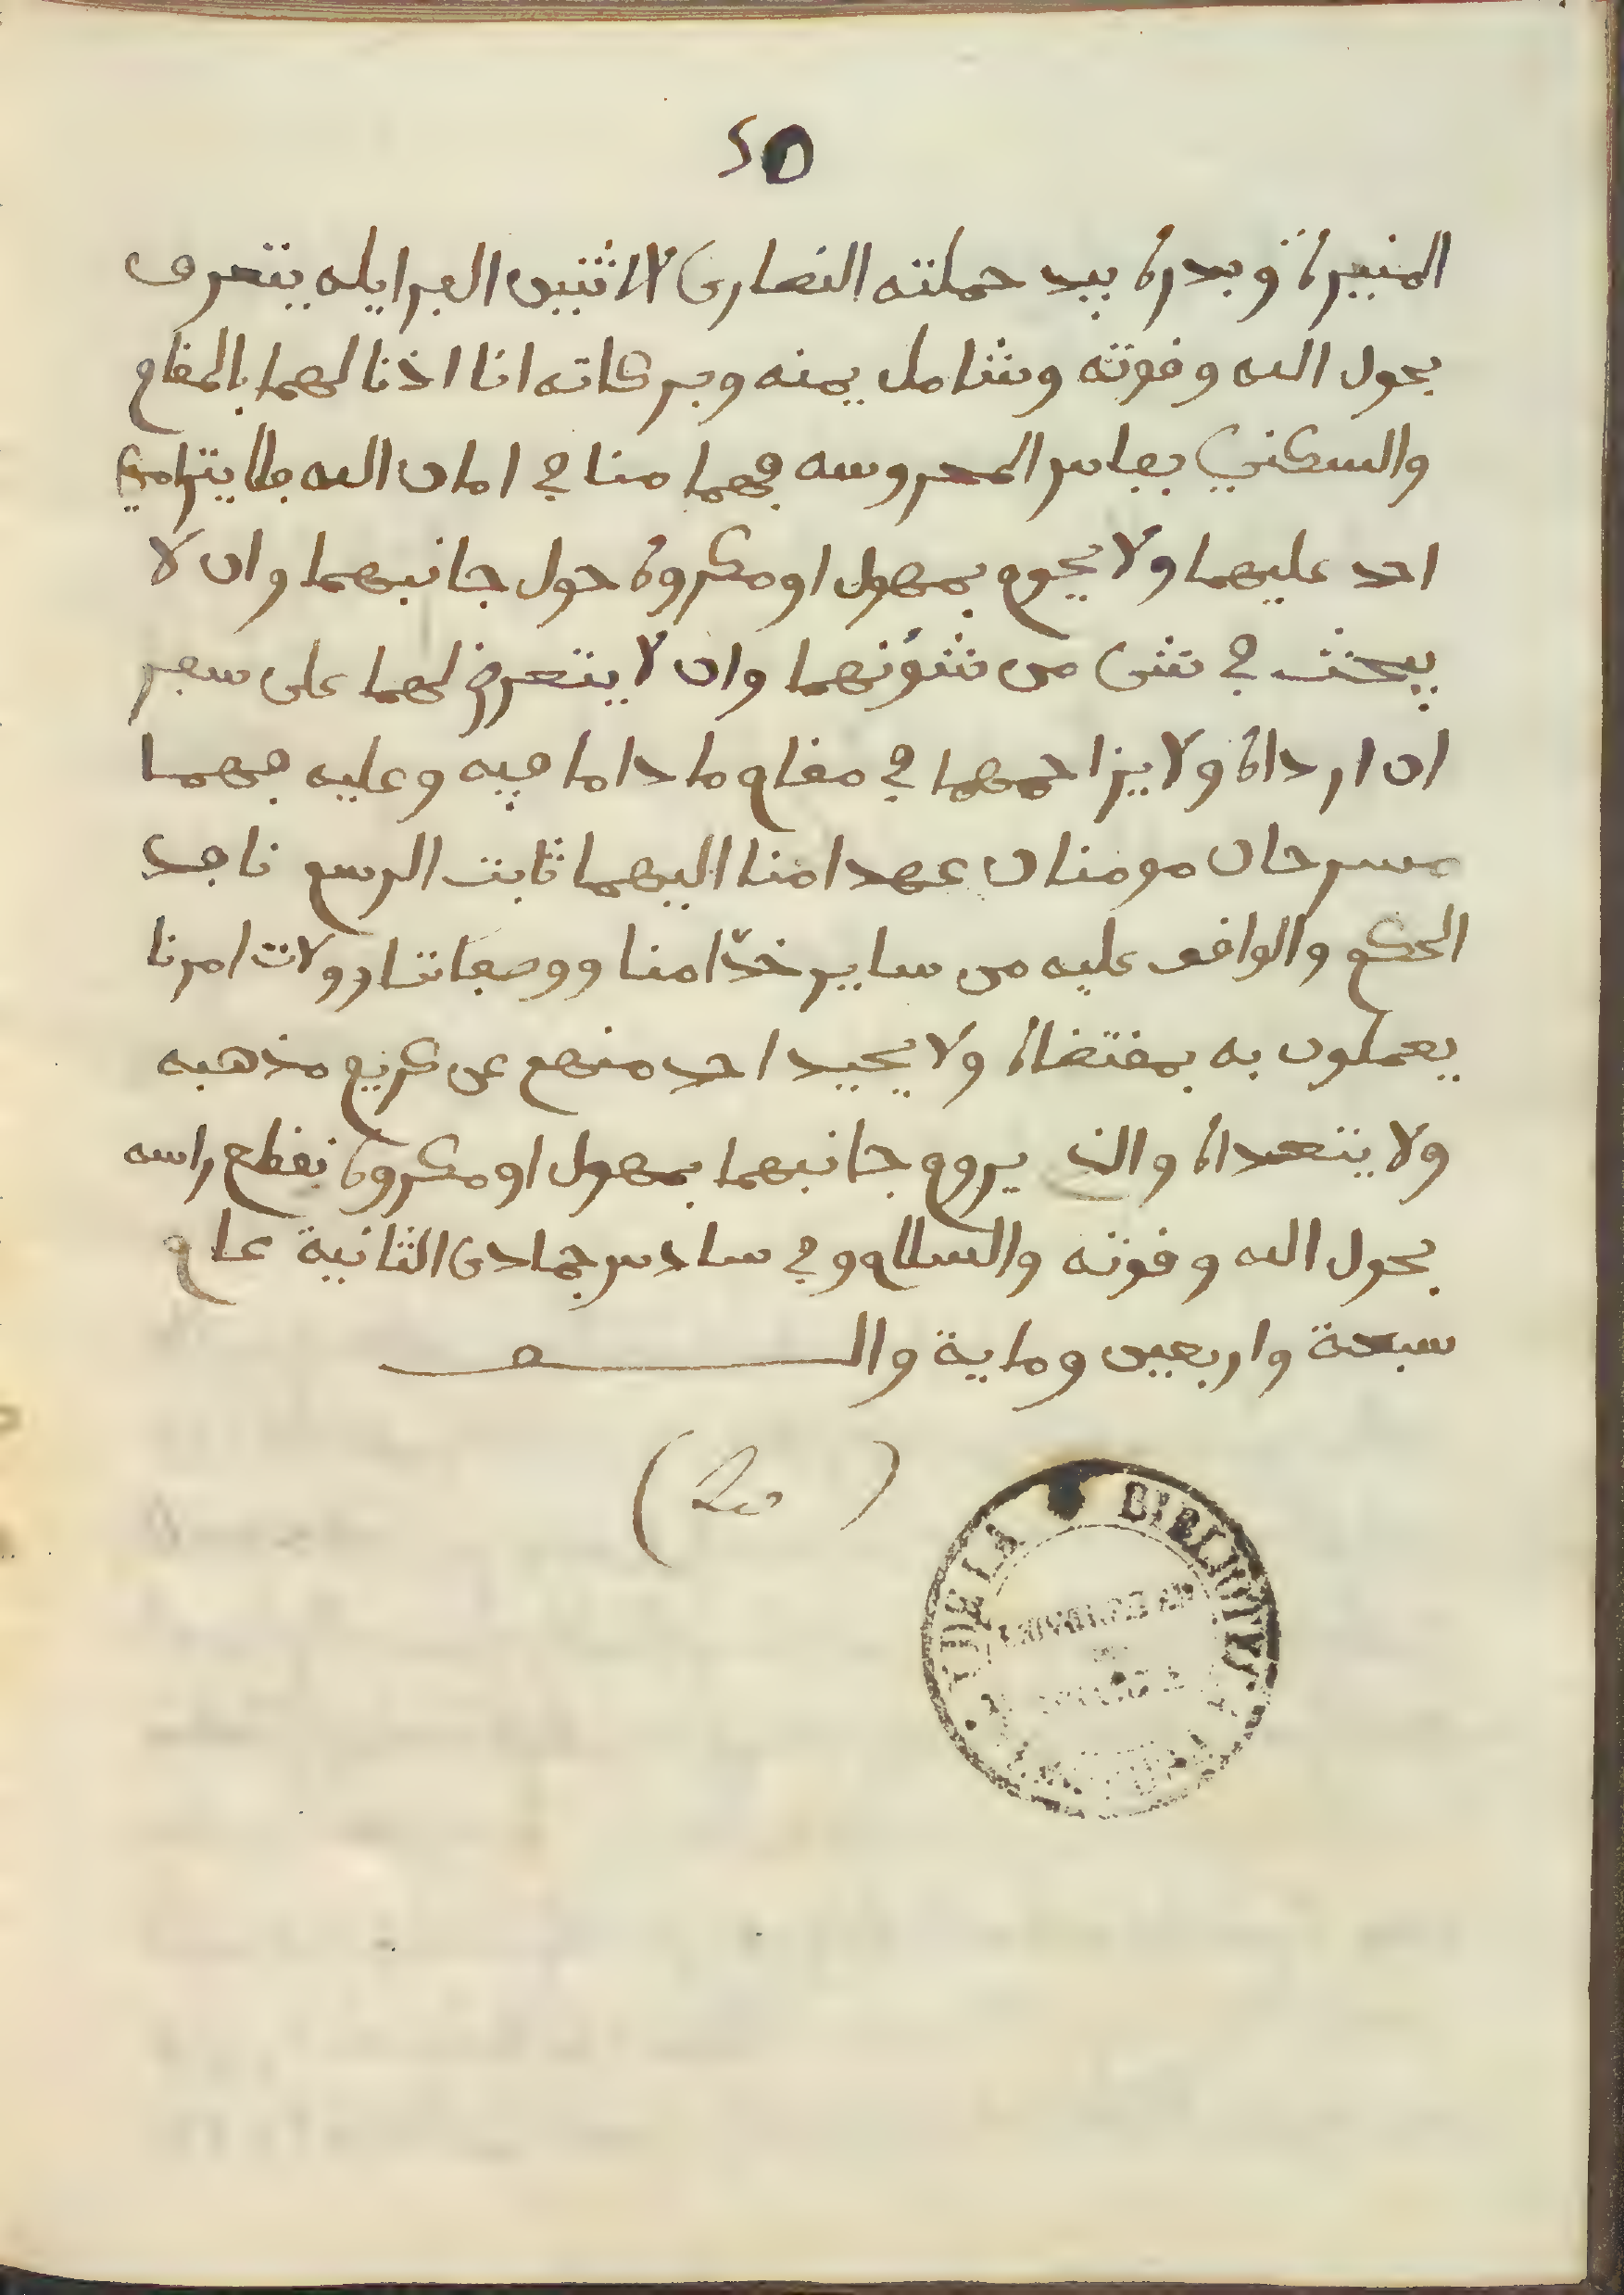 25
المنيرة وبدره بيد حملته النصارى الاثنين الفرايله يتعرف
بحول الله وقوته وشامل يمنه وبركاته انا اذنا لهما بالمقام
والسكني بفاس المحروسه فهما منا في امان الله فلا يترامي
احد عليهما ولا يحوم بمهول او مكروه حول جانبهما وان لا
يبحث في شى من شؤنهما وان لا يتعرض لهما على سفر
ان ارداه ولا يزاحمهما في مقام ما داما فيه وعليه فهما
مسرحان مومنان عهدا منا اليهما ثابت الرسم نافد
الحكم والواقف عليه من ساير خدّامنا ووصفاننا وولات امرنا
يعملون به بمقتضاه ولا يحيد احد منهم عن كريم مذهبه
ولا يتعداه والذ يروم جانبهما بمهول او مكروه نقطع راسه
بحول الله وقوته والسلام وفي سادس جمادى الثانية عام
سبعة واربعين وماية والف
BIBLIOTH DE LA